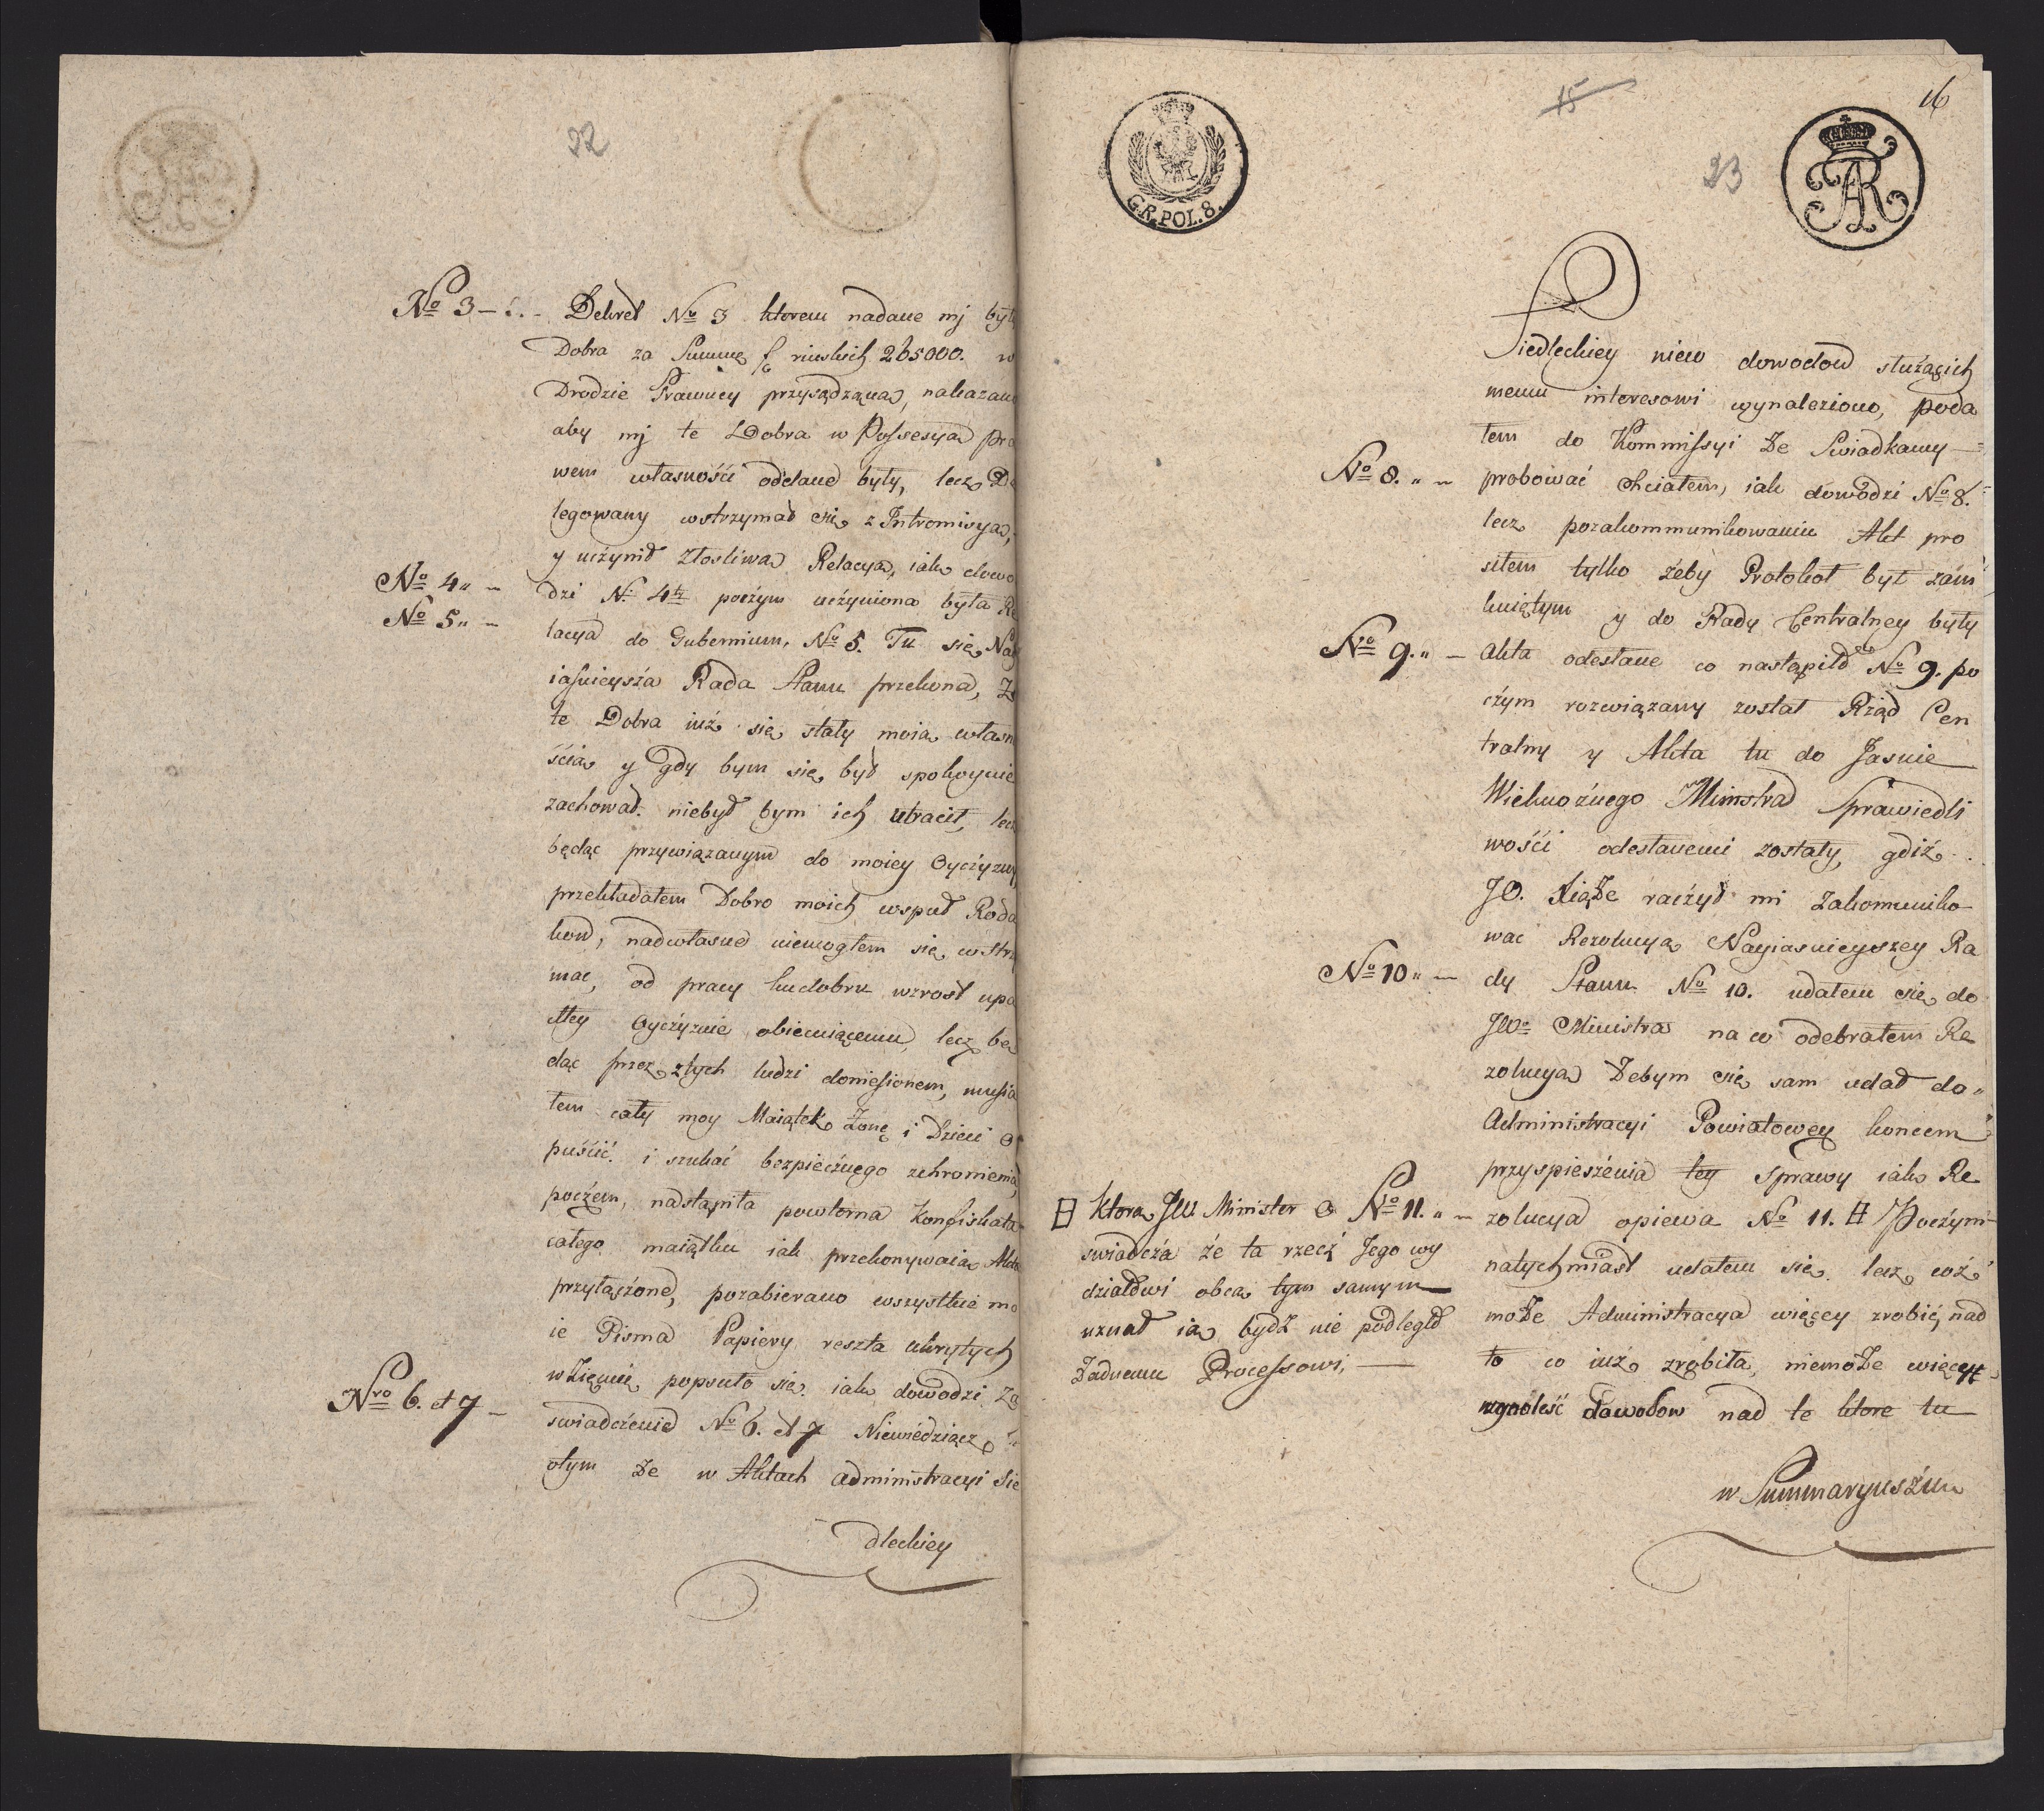 22
No 3 -
Dekret No 3 ktorem nadane mj były
Dobra za Summę f ruskich 265000. w
Drodze Prawney przysądzną, nakazano
aby mj te Dobra w Possesyą pra
wem własności oddane były, lecz De
legowany wstrzymał się z Intromisyą,
y uczynił złosliwą Relacyą, iako dowo
No 4 „ -
dzi No 4ty poczym uczyniona była Re
No 5 „ -
lacya do Gubernium, No 5. Tu się Nay
iaśnieysza Rada Stanu przekona, że
te Dobra iuż się stały moią własno
ścią y gdy bym się był spokoynie
zachował niebył bym ich utracił, lecz
będąc przywiązanym do moiey Oyczyzny
przekładałem Dobro moich wspuł Roda
kow, nad własne niemogłem się wstrzy
mac, od pracy ku dobru wzrost upa
dłey Oyczyznie obiecuiącemu, lecz bę
dąc przez złych ludzi doniesionem, musia
łem cały moy Maiątek Żonę i Dzieci o
puścić i szukać bezpiecznego schronienia,
poczem, nastąpiła powtorna Konfiskata
całego maiątku iak przekonywaią Akta
przyłączone, pozabierano wszystkie mo
ie Pisma Papiery reszta ukrytych
w Ziemię popsuło się iako dowodzi Za
Nro 6. et 7 -
swiadczenie No 6. et 7 Niewiedziąc
otym że w Aktach administracyi Sie
dleckiey
G.R.POL.8.
15
16
23
AR
Siedleckiey niew dowodow służących
memu interesowi wynaleziono, poda
łem do Kommissyi że Swiadkamy
No 8. „ -
probować chciałem, iak dowodzi No 8.
lecz po zakommunikowaniu Akt pro
siłem tylko żeby Protokoł był zam
kniętym y do Rady Centralney były
No 9. „ -
Akta odesłane co nastąpiło No 9. po
czym rozwiązany został Rząd Cen
tralny y Akta tu do Jasnie
Wielmożnego Ministra Sprawiedli
wości odesłanemi zostały, gdiż
JO. Xiąże raczył mi zakomuniko
wac Rezolucyą Nayiasnieyszey Ra
No 10 „ -
dy Stanu No 10. udałem się do
JWo Ministra na co odebrałem Re
zolucyą Żebym się sam udał do
Administracyi Powiatowey koncem
przyspieszenia tey Sprawy iako Re
No 11. „ -
zolucya opiewa No 11. Poczym
natychmiast udałem się lecz coż
może Administracya więcey zrobić, nad
to co iuż zrobiła, niemoże więcey
wynaleść dowodow nad te ktore tu
ktorą JW Minister
swiadcza że ta rzecz Jego wy
działowi obca tym samym
uznał ią bydź nie podległo
Żadnemu Processowi, —
w Summaryuszu